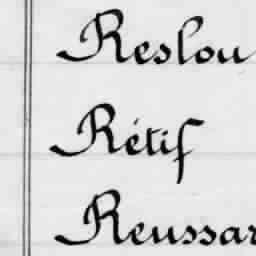 Reslou
Rétif
Reussar